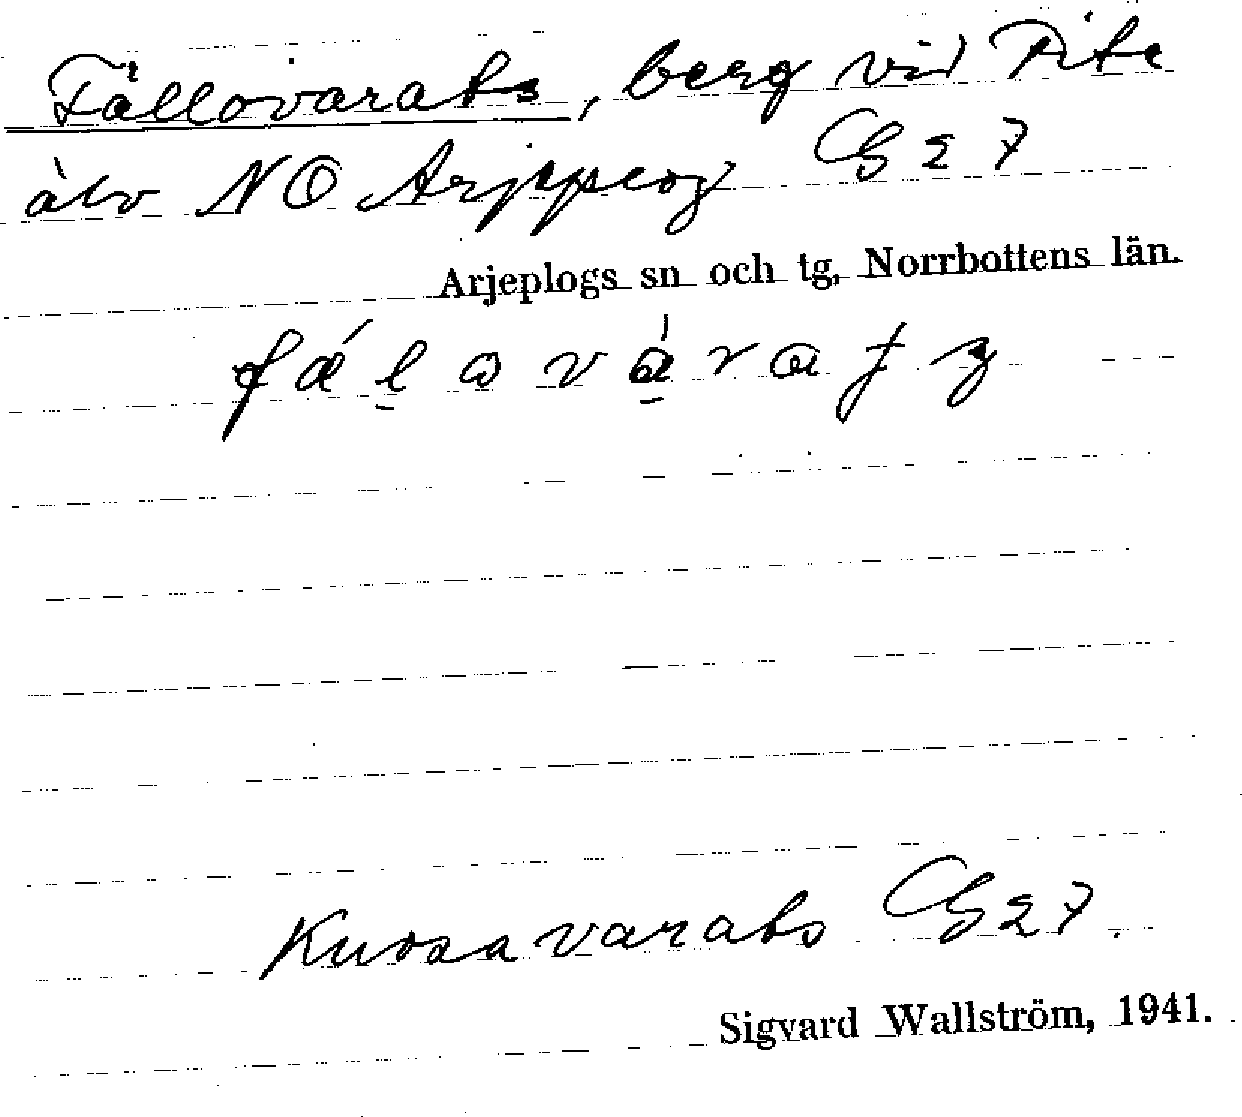 Fállovarats, berg vid Pite
älv NO Arjeplog G 27
Arjeplogs sn och tg, Norrbottens län.
Kuossavarats G 27.
Sigvard Wallström, 1941.